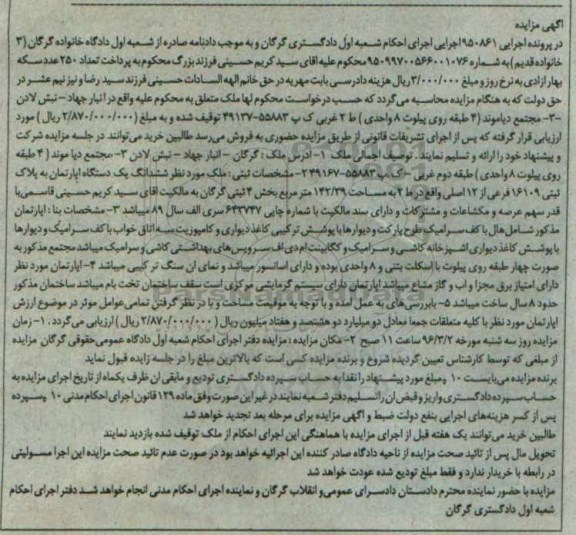 آگهی مزایده
در پرونده اجرایی ۹۵۰۸۶۱اجرایی اجرای احکام شعبه اول دادگستری گرگان و به موجب دادنامه صادره از شعبه اول دادگاه خانواده گرگان (۳
خانواده قدیم) به شماره ۹۵۰۹۹۷۰۰۵۶۶۰۰۱۰۷۶ محکوم علیه آقای سید کریم حسینی فرزند بزرگ محکوم به پرداخت تعداد ۲۵۰ عدد سکه
بهار ازادی به نرخ روز و مبلغ ۳/۰۰۰/۰۰۰ ریال هزینه دادرسی بابت مهریه در حق خانم الهه السادات حسینی فرزند سید رضا و نیز نیم عشر در
حق دولت که به هنگام مزایده محاسبه می‌گردد که حسب درخواست محکوم لها ملک متعلق به محکوم علیه واقع در انبار جهاد – نبش لادن
۳- مجتمع دیاموند (۴ طبقه روی پیلوت ۸ واحدی ) ط ۲ غربی ک پ ۵۵۸۸۳-۴۹۱۳۷ توقیف شده و به مبلغ (۲/۸۷۰/۰۰۰/۰۰۰ ریال ) مورد
ارزیابی قرار گرفته که پس از اجرای تشریفات قانونی از طریق مزایده حضوری به فروش می‌رسد طالبین خرید می‌توانند در جلسه مزایده شرکت
و پیشنهاد خود را ارائه و تسلیم نمایند. توصیف اجمالی ملک ۱- ادرس ملک : گرگان – انبار جهاد – نبش لادن ۳-مجتمع دیا موند ( ۴ طبقه
روی پیلوت ۸ واحدی ) طبقه دوم غربی – ک پ ۵۵۸۸۳-۴۹۱۶۷ ۲-مشخصات ثبتی : ملک مورد نظر ششدانگ یک دستگاه اپارتمان به پلاک
ثبتی ۱۶۱۰۹ فرعی از ۱۲ اصلی واقع در ط ۲ به مساحت ۱۴۲/۲۹ متر مربع بخش ۴ ثبتی گرگان به مالکیت اقای سید کریم حسینی قاسمی‌با
قدر سهم عرصه و مشاعات و مشترکات و دارای سند مالکیت با شماره چاپی ۶۴۳۷۳۷ سری الف سال ۸۹ میباشد ۳- مشخصات بنا : اپارتمان
مذکور شامل هال با کف سرامیک طرح پارکت و دیوارها با پوشش ترکیبی کاغذ دیواری و کامپوزیت سه اتاق خواب با کف سرامیک و دیوارها
با پوشش کاغذ دیواری اشپزخانه کاشی و سرامیک و کابینت ام دی اف سرویس‌های بهداشتی کاشی و سرامیک میباشد مجتمع مذکور به
صورت چهار طبقه روی پیلوت با اسکلت بتنی و ۸ واحدی بوده و دارای اسانسور میباشد و نمای ان سنگ تر کیبی میباشد ۴- اپارتمان مورد نظر
دارای امتیاز برق مجزا و اب و گاز مشاع میباشد اپارتمان دارای سیستم گرمایشی مرکزی است سقف ساختمان تخت بام میباشد ساختمان مذکور
حدود ۸ سال ساخت میباشد ۵- بابررسی‌های به عمل امده و با توجه به موقیت مساحت و با در نظر گرفتن تمامی‌عوامل موثر در موضوع ارزش
اپارتمان مورد نظر با کلیه متعلقات جمعا معادل دو میلیارد دو هشتصد و هفتاد میلیون ریال ( ۲/۸۷۰/۰۰۰/۰۰۰ ریال ) ارزیابی می‌گردد . ۱- زمان
مزایده روز سه شنبه مورخه ۹۶/۳/۲ ساعت ۱۱ صبح ۲- مکان مزایده : مزایده دفتر اجرای احکام شعبه اول دادگاه عمومی‌حقوقی گرگان مزایده
از مبلغی که توسط کارشناس تعیین گردیده شروع و برنده مزایده کسی است که بالاترین مبلغ را در جلسه زایده قبول نماید
برنده مزایده می‌بایست ۱۰ ٪ومبلغ مورد پیشنهاد را نقدا به حساب سپرده دادگستری تودیع و مابقی ان ظرف یکماه از تاریخ اجرای مزایده به
حساب سپرده دادگستری واریز و قبض ان را تسلیم دفتر شعبه نمایند در غیر این صورت وفق ماده ۱۲۹ قانون اجرای احکام مدنی ۱۰ ٪سپرده
پس از کسر هزینه‌های اجرایی بنفع دولت ضبط و اگهی مزایده برای مرحله بعد تجدید خواهد شد
طالبین خرید می‌توانند یک هفته قبل از اجرای مزایده با هماهنگی این اجرای احکام از ملک توقیف شده بازدید نمایند
تحویل مال پس از تائید صحت مزایده از ناحیه دادگاه صادر کننده این اجرائیه خواهد بود در صورت عدم تائید صحت مزایده این اجرا مسولیتی
در رابطه با خریدار ندارد و فقط مبلغ تودیع شده عودت خواهد شد
مزایده با حضور نماینده محترم دادستان دادسرای عمومی‌و انقلاب گرگان و نماینده اجرای احکام مدنی انجام خواهد شد دفتر اجرای احکام
شعبه اول دادگستری گرگان